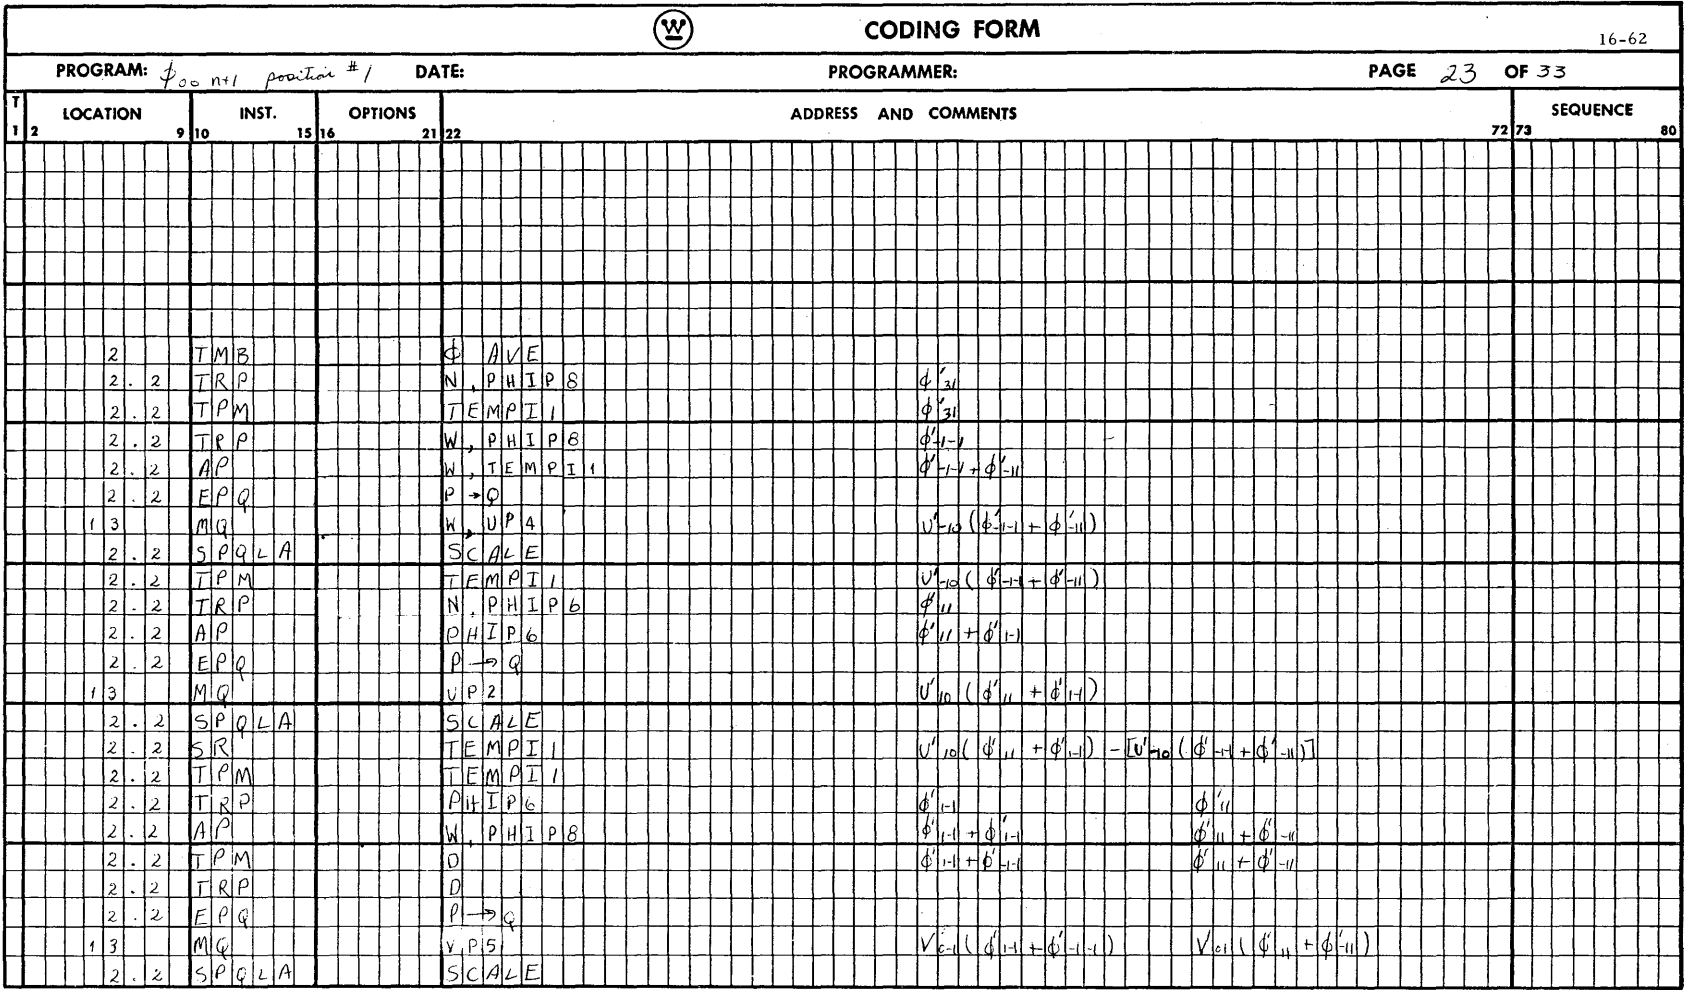 W CODING FORM
16-62
PROGRAM: φ00 n+1 position #1 DATE: PROGRAMMER: PAGE 23 OF 33
T LOCATION INST. OPTIONS ADDRESS AND COMMENTS SEQUENCE
1 2 9 10 15 16 21 22 72 73 80
2 TMB φ AVE
2.2 TRP N,PHIP8 φ'31
2.2 TPM TEMPI1 φ'31
2.2 TRP W,PHIP8 φ'-1-1
2.2 AP W,TEMPI1 φ'-1-1 + φ'-11
2.2 EPQ P→Q
13 MQ W,UP4 U'-10 (φ'-1-1 + φ'-11)
2.2 SPQLA SCALE
2.2 TPM TEMPI1 U'-10 (φ'-1-1 + φ'-11)
2.2 TRP N,PHIP6 φ'11
2.2 AP PHIP6 φ'11 + φ'1-1
2.2 EPQ P→Q
13 MQ UP2 U'10 (φ'11 + φ'1-1)
2.2 SPQLA SCALE
2.2 SR TEMPI1 U'10 (φ'11 + φ'1-1) - [U'-10 (φ'-1-1 + φ'-11)]
2.2 TPM TEMPI1
2.2 TRP PHIP6 φ'1-1 φ'11
2.2 AP W,PHIP8 φ'1-1 + φ'-1-1 φ'11 + φ'-11
2.2 TPM D φ'1-1 + φ'-1-1 φ'11 + φ'-11
2.2 TRP D
2.2 EPQ P→Q
13 MQ VP5 V0-1 (φ'1-1 + φ'-1-1) V01 (φ'11 + φ'-11)
2.2 SPQLA SCALE